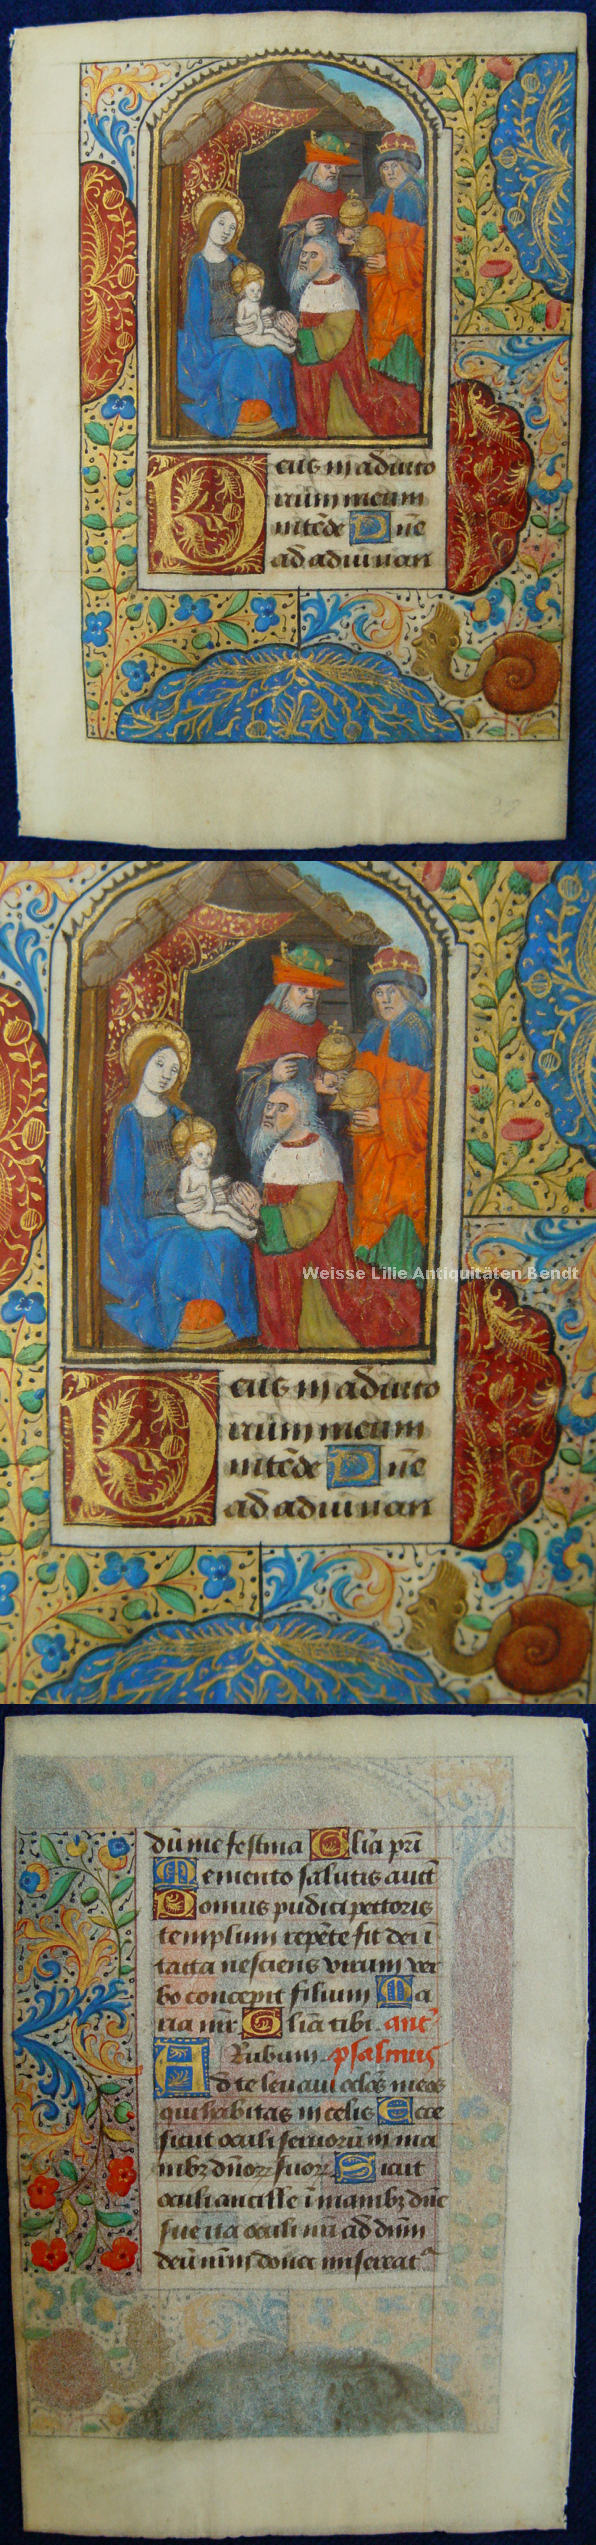 Deus in adiuto
rium meum
intēde Dn̄e
ad adiuuan
Weisse Lilie Antiquitäten Bendt
Deus in adiuto
rium meum
intēde Dn̄e
ad adiuuan
dū me festina Glīa pri
Memento salutis auct
Domus pudici pectoris
templum repēte fit dei ī
tacta nesciens virum ver
bo concepit filium Ma
ria mr̄ Glīa tibi antˀ
Rubum psalmus
Ad te leuaui oclōs meos
qui habitas in celis Ecce
sicut oculi seruorū in ma
nibꝫ dn̄oꝝ suoꝝ Sicut
oculi ancille ī manibꝫ dn̄e
sue ita oculi nr̄i ad dn̄m
deū nr̄m donec misereatᷣ